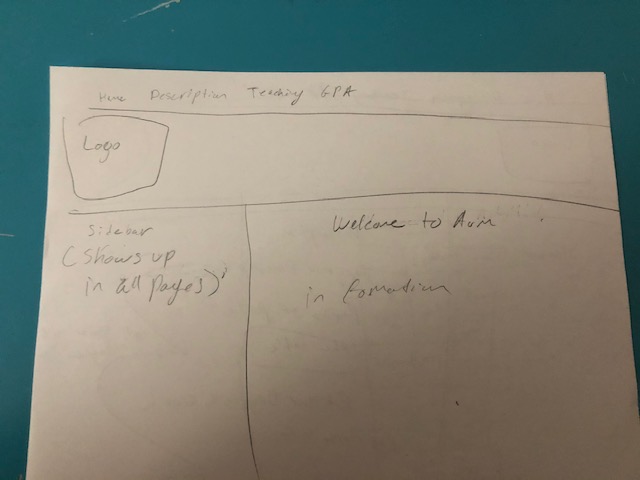 Home Description Teaching GPA
Logo
Sidebar
(Shows up
in all pages)
Welcome to
information